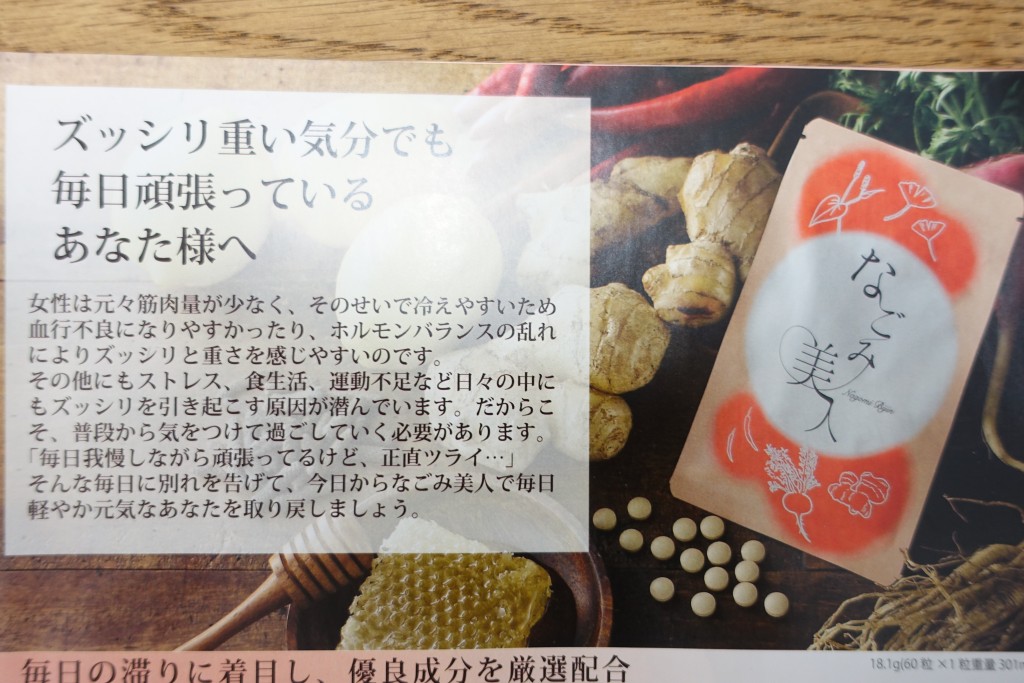 ズッシリ重い気分でも
毎日頑張っている
あなた様へ
女性は元々筋肉量が少なく、そのせいで冷えやすいため
血行不良になりやすかったり、ホルモンバランスの乱れ
によりズッシリと重さを感じやすいのです。
その他にもストレス、食生活、運動不足など日々の中に
もズッシリを引き起こす原因が潜んでいます。だからこ
そ、普段から気をつけて過ごしていく必要があります。
「毎日我慢しながら頑張ってるけど、正直ツライ…」
そんな毎日に別れを告げて、今日からなごみ美人で毎日
軽やか元気なあなたを取り戻しましょう。
なごみ
美人
Nagomi Bijin
毎日の滞りに着目し、優良成分を厳選配合
18.1g(60粒×1粒重量301m